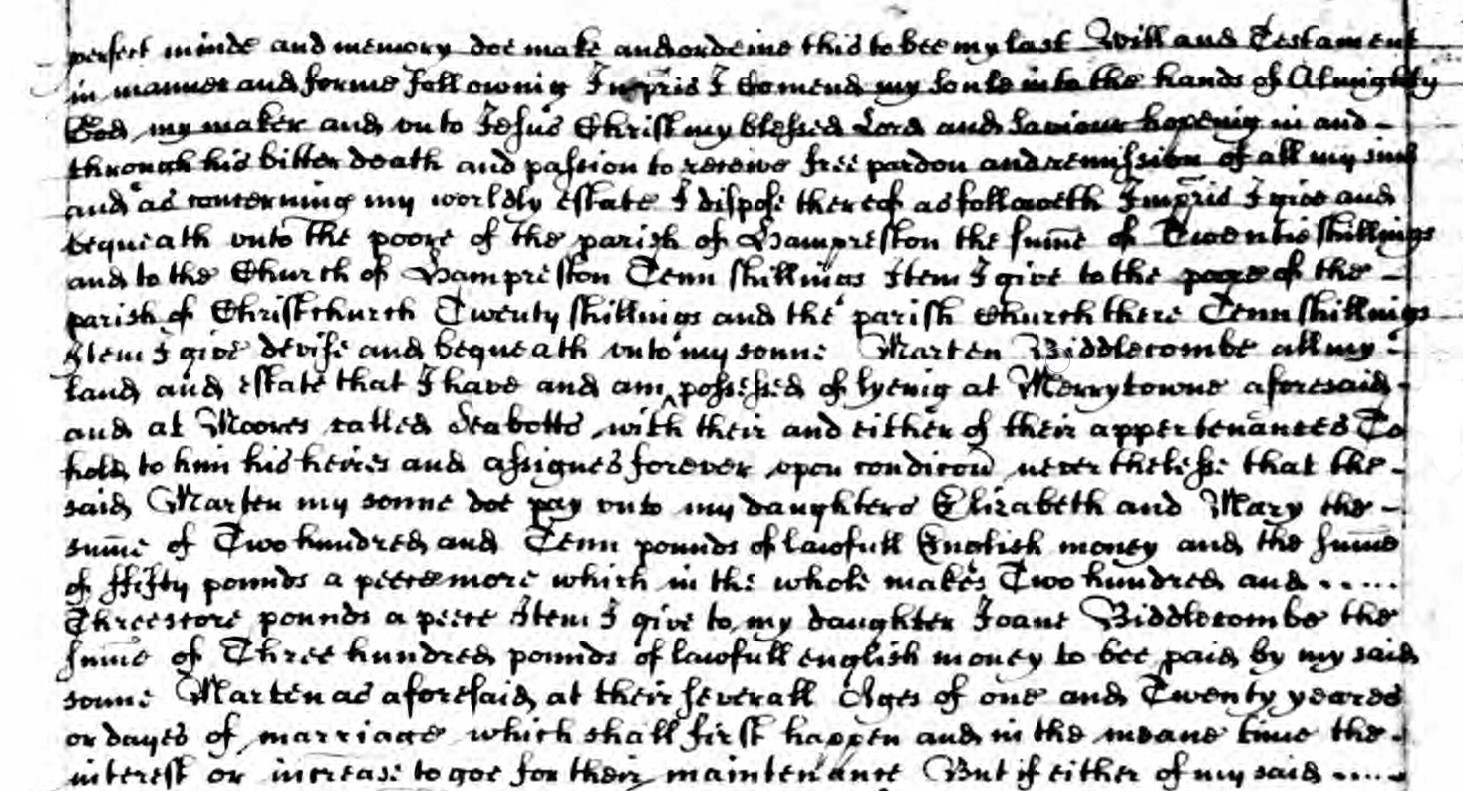 perfect minde and memory doe make and ordeine this to bee my last Will and Testament
in manner and forme follownig Inpris I Comend my soule into the hands of Almighty
God my maker and vnto Jesus Christ my blessed Lord and Saviour hopenig in and -
through his bitter death and passion to receive free pardon and remission of all my sins
and as concerning my worldly estate I dispose thereof as followeth Inpris I give and
bequeath vnto the poore of the parish of Hampreston the sume of Twentie shillings
and to the Church of Hampreston Tenn shillings Item I give to the poore of the -
parish of Christchurch Twenty shillings and the parish Church there Tenn shillings
Item I give devise and bequeath vnto my sonne Marten Biddlecombe all my -
land and estate that I have and am possessed of lyenig at Merrytowne aforesaid -
and at Moores called Seabotts with their and either of their appertenances To
hold to him his heires and assignes forever vpon condicon neverthelesse that the -
said Marten my sonne doe pay vnto my daughters Elizabeth and Mary the -
sume of Two hundred and Tenn pounds of lawfull English money and the sume
of ffifty pounds a peece more which in the whole makes Two hundred and .....
Threescore pounds a peece Item I give to my daughter Joane Biddlecombe the
sume of Three hundred pounds of lawfull english money to bee paid by my said
sonne Marten as aforesaid at their severall Ages of one and Twenty yeares
or dayes of marriage which shall first happen and in the meane time the -
interest or increase to goe for their maintenance But if either of my said .....